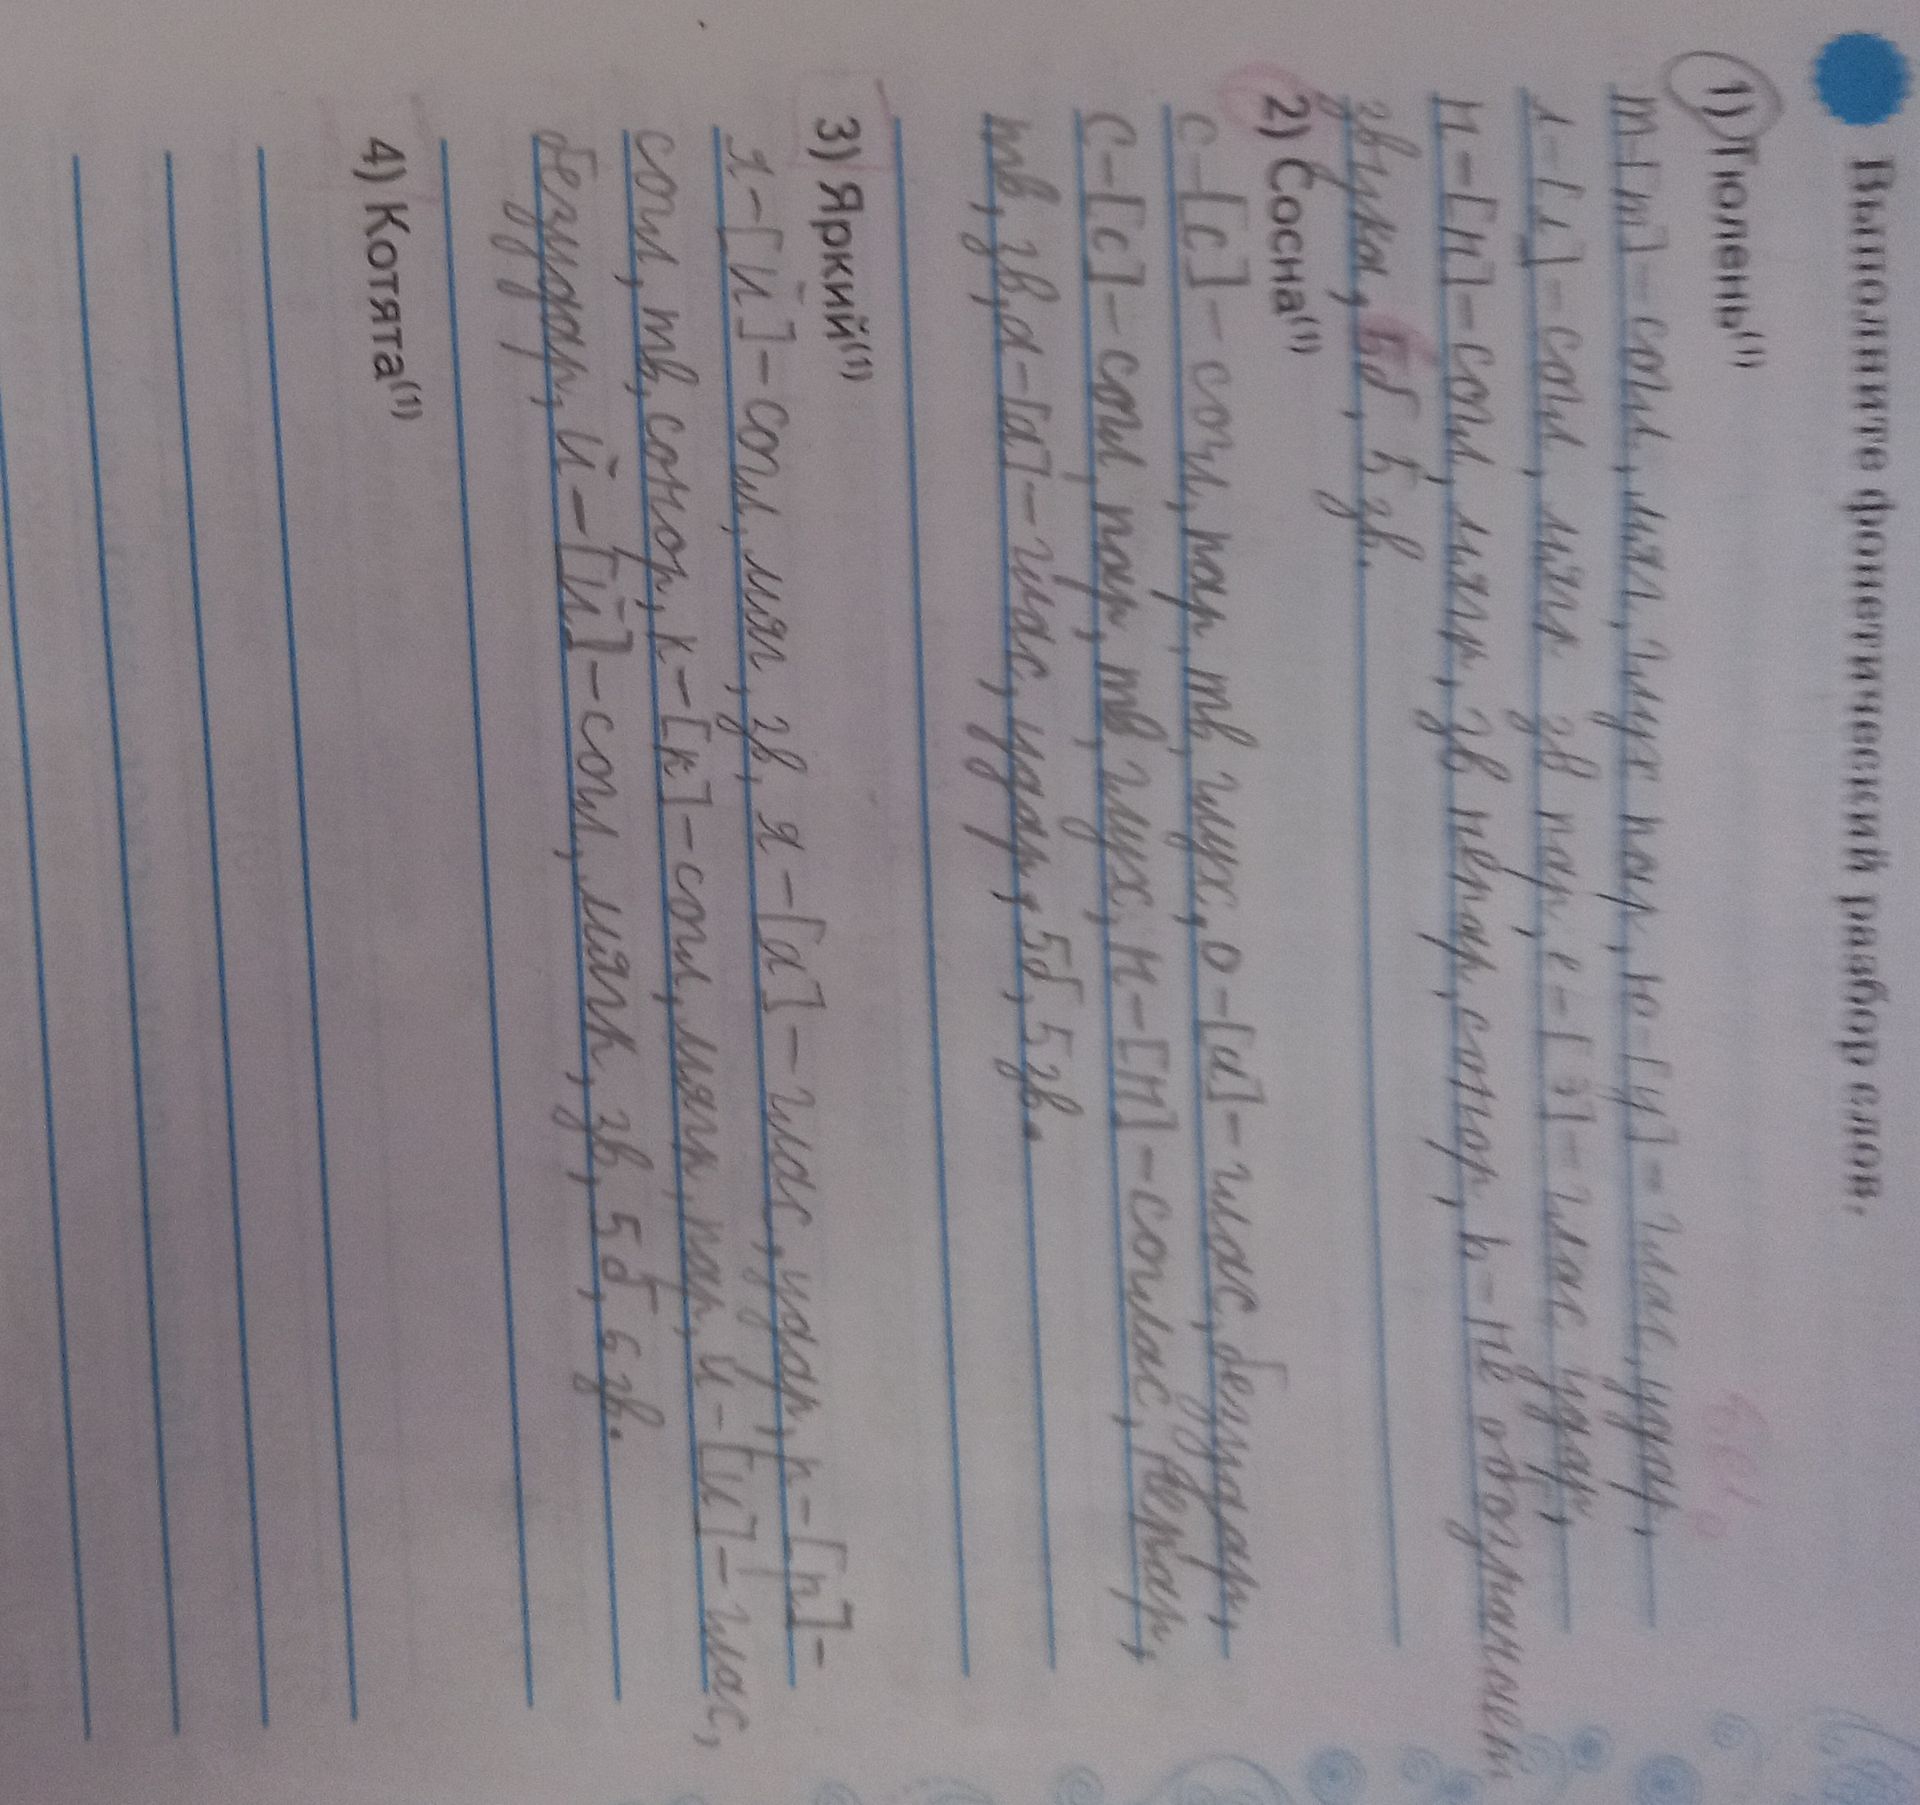 Выполните фонетический разбор слов.
1) Тюлень(1)
т-[т]-согл, мяг, глух пар, ю-[у]-глас, удар,
л-[л]-согл, мягк зв пар, е-[э]-глас удар,
н-[н]-согл, мягк, зв непар, сонор, ь-не обозначает
звука, 5б, 5 зв.
2) Сосна(1)
с-[с]-согл, пар, тв, глух, о-[а]-глас, безудар,
с-[с]-согл, пар, тв, глух, н-[н]-соглас, непар,
тв, зв, а-[а]-глас, удар, 5б, 5 зв.
3) Яркий(1)
я-[й]-согл, мяг, зв, я-[а]-глас, удар, р-[р]-
согл, тв, сонор, к-[к]-согл, мягк, пар, и-[и]-глас,
безудар, й-[й]-согл, мягк, зв, 5б, 6 зв.
4) Котята(1)